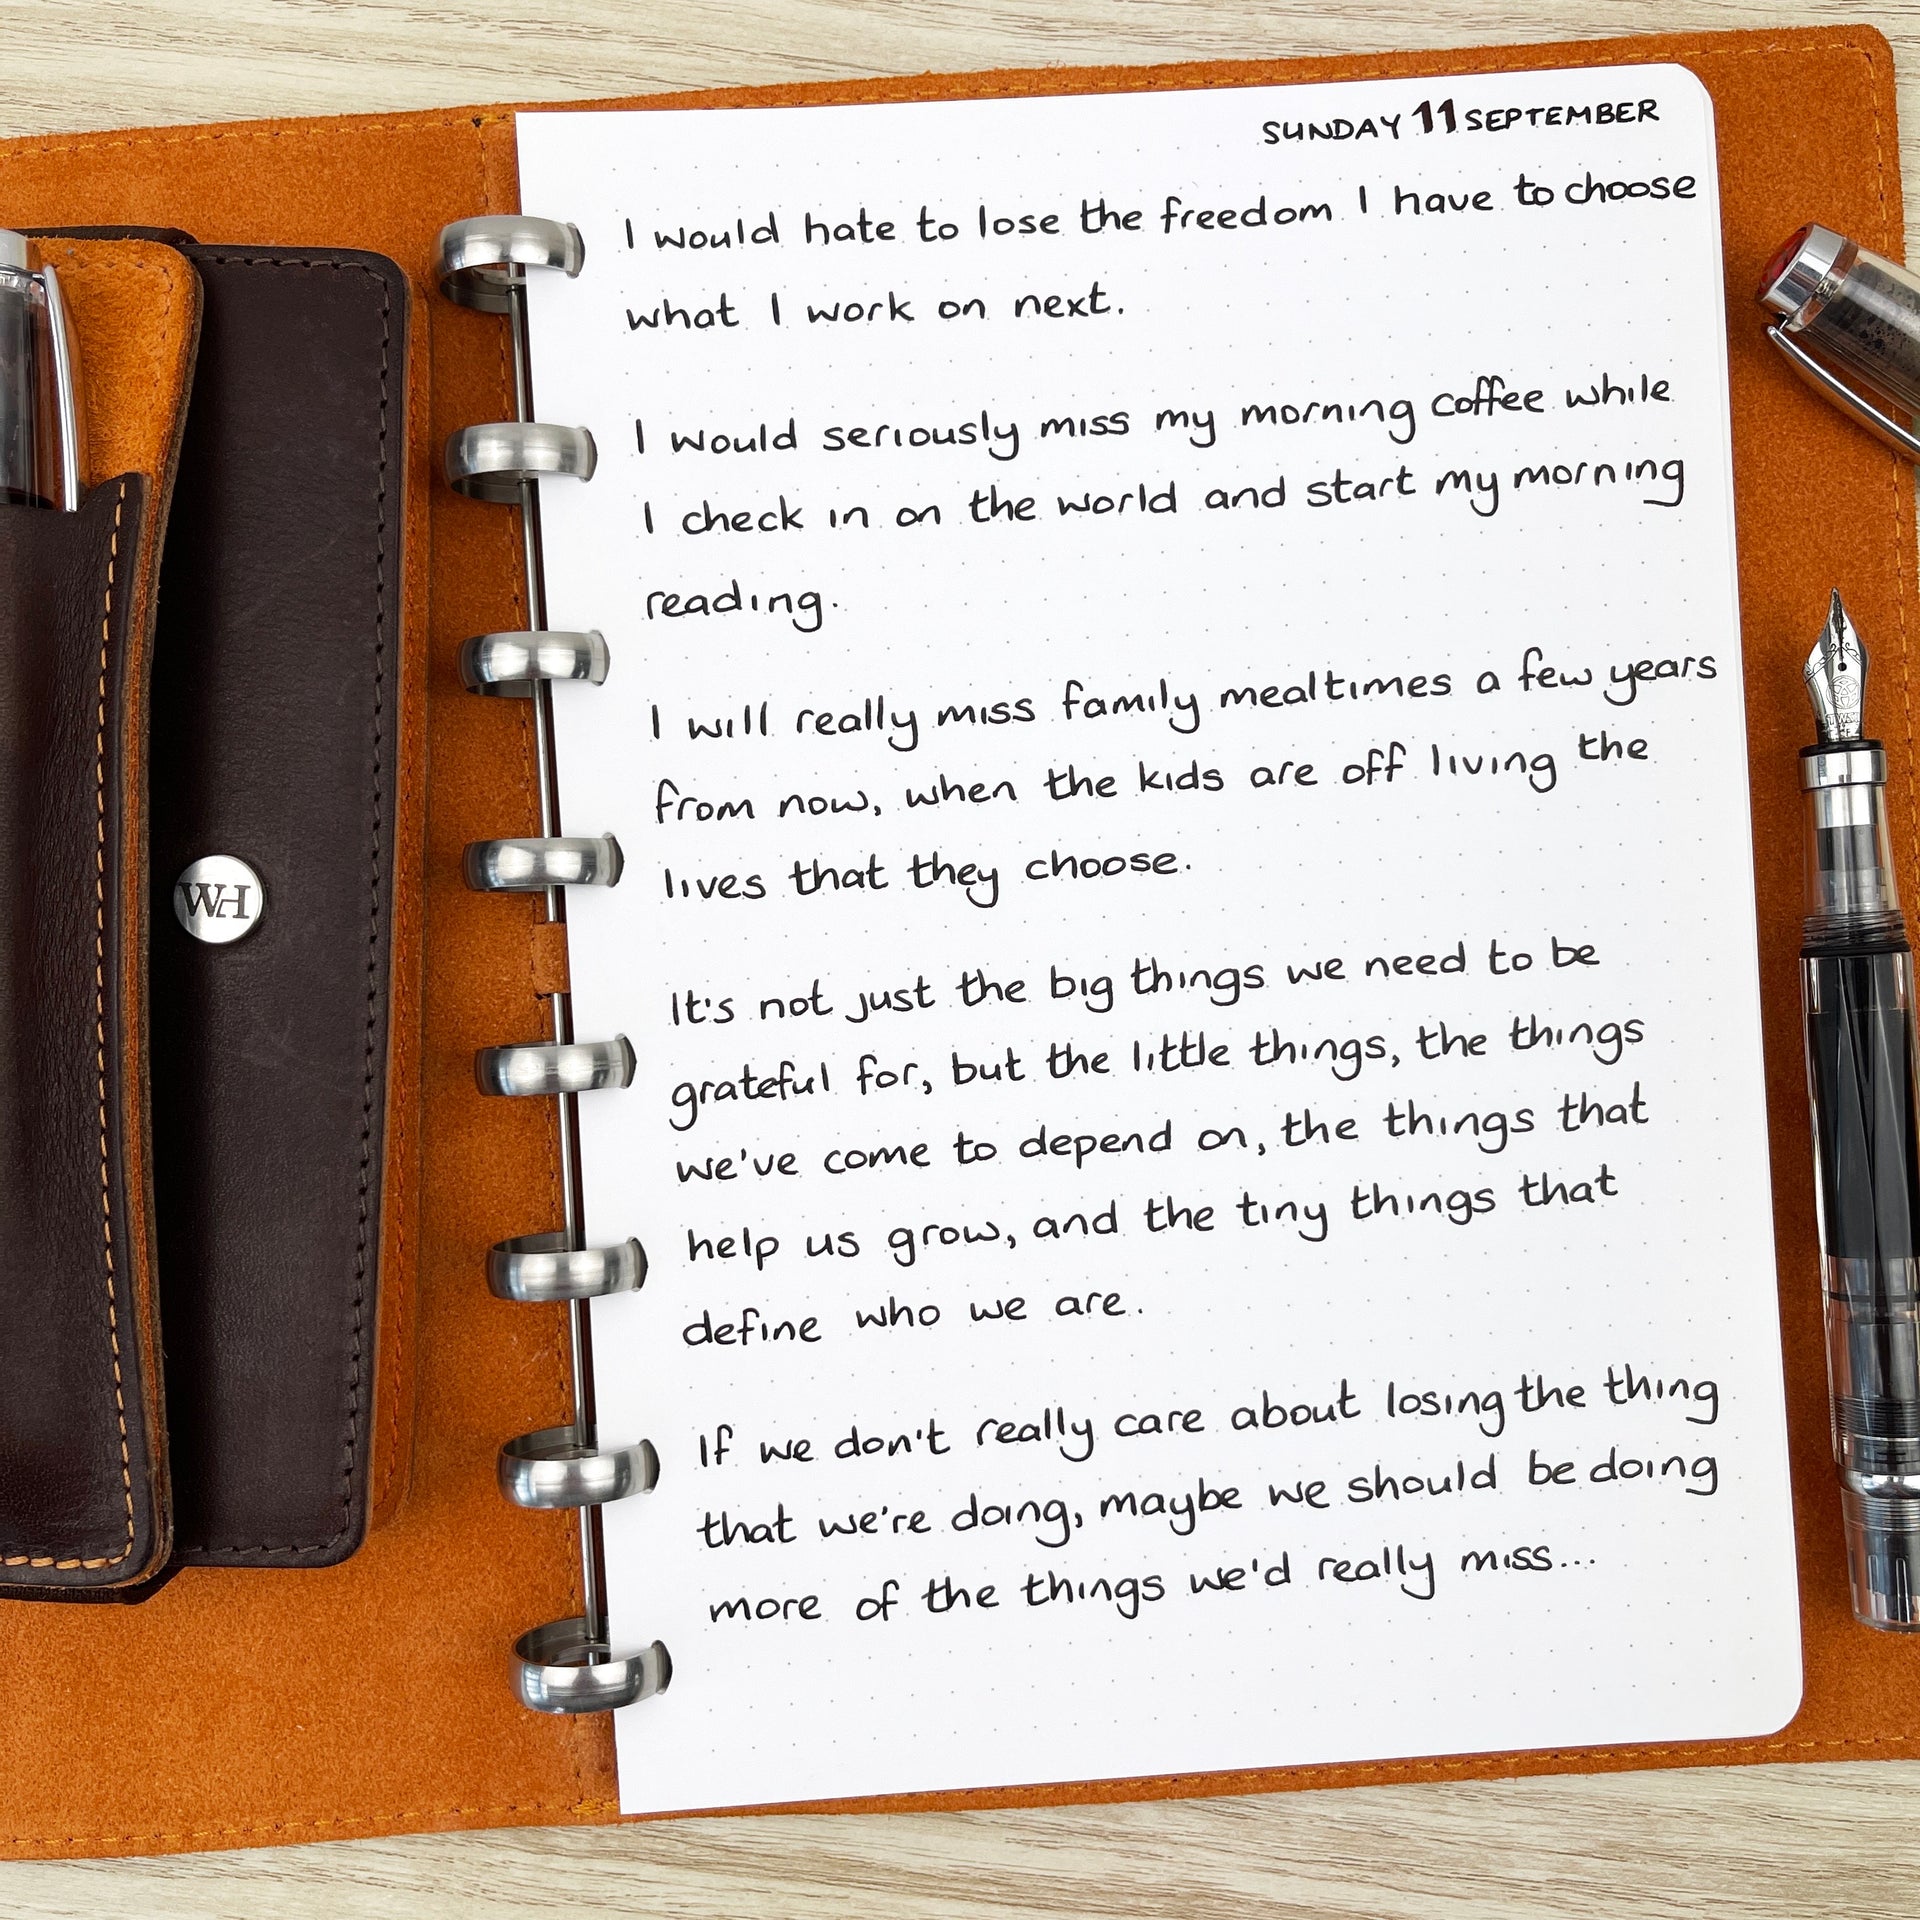 SUNDAY 11 SEPTEMBER
I would hate to lose the freedom I have to choose
what I work on next.
I would seriously miss my morning coffee while
I check in on the world and start my morning
reading.
I will really miss family mealtimes a few years
from now, when the kids are off living the
lives that they choose.
It's not just the big things we need to be
grateful for, but the little things, the things
we've come to depend on, the things that
help us grow, and the tiny things that
define who we are.
If we don't really care about losing the thing
that we're doing, maybe we should be doing
more of the things we'd really miss...
WH